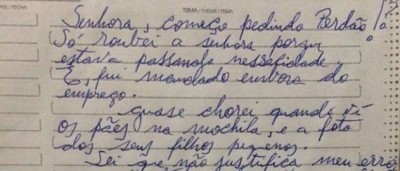 TEMA / THEME / TEMA:
Senhora, começo pedindo Perdão!
Só roubei a senhora porque
estava passando nessesidade
E, fui mandado embora do
emprego.
Quase chorei quando vi
os pães na mochila, e a foto
dos seus filhos pequenos.
Sei que não justifica meu erro